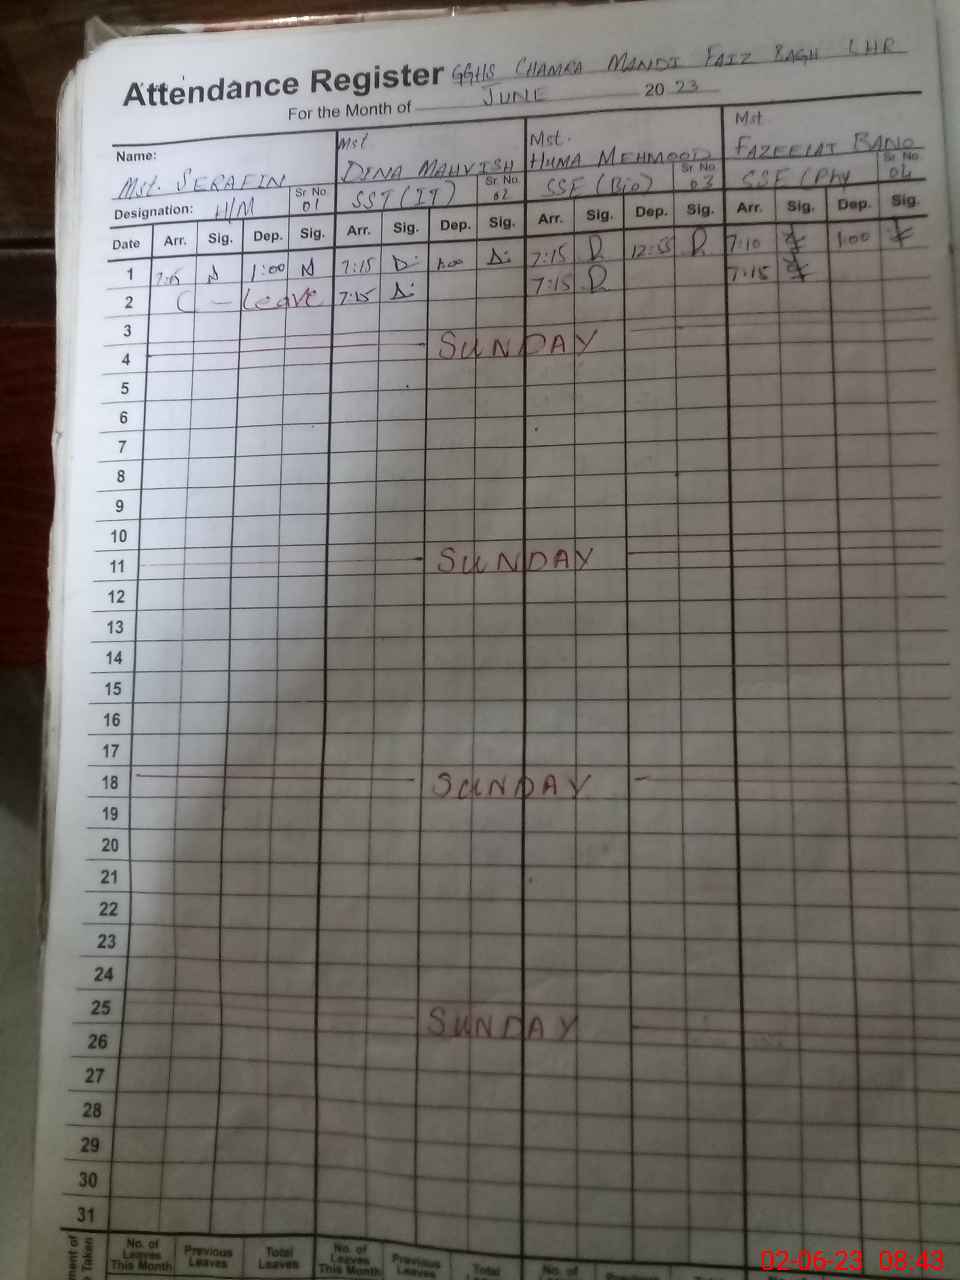 Attendance Register GGHS CHAMRA MANDI FAIZ BAGH LHR
For the Month of JUNE 20 23
Name: Mst. SERAFIN Mst. DINA MAHVISH Mst. HUMA MEHMOOD Mst. FAZEELAT BANO
Designation: H/M Sr No 01 SST (IT) Sr No 02 SSE (Bio) Sr No 03 SSE (Phy Sr No 04
Date Arr. Sig. Dep. Sig. Arr. Sig. Dep. Sig. Arr. Sig. Dep. Sig. Arr. Sig. Dep. Sig.
1 7:15 1:00 7:15 1:00 7:15 12:55 7:10 1:00
2 C - Leave 7:15 7:15 7:15
3
4 SUNDAY
5
6
7
8
9
10
11 SUNDAY
12
13
14
15
16
17
18 SUNDAY
19
20
21
22
23
24
25 SUNDAY
26
27
28
29
30
31
No. of Leaves This Month Previous Leaves Total Leaves No. of Leaves This Month Previous Leaves Total No. of
02-06-23 08:43